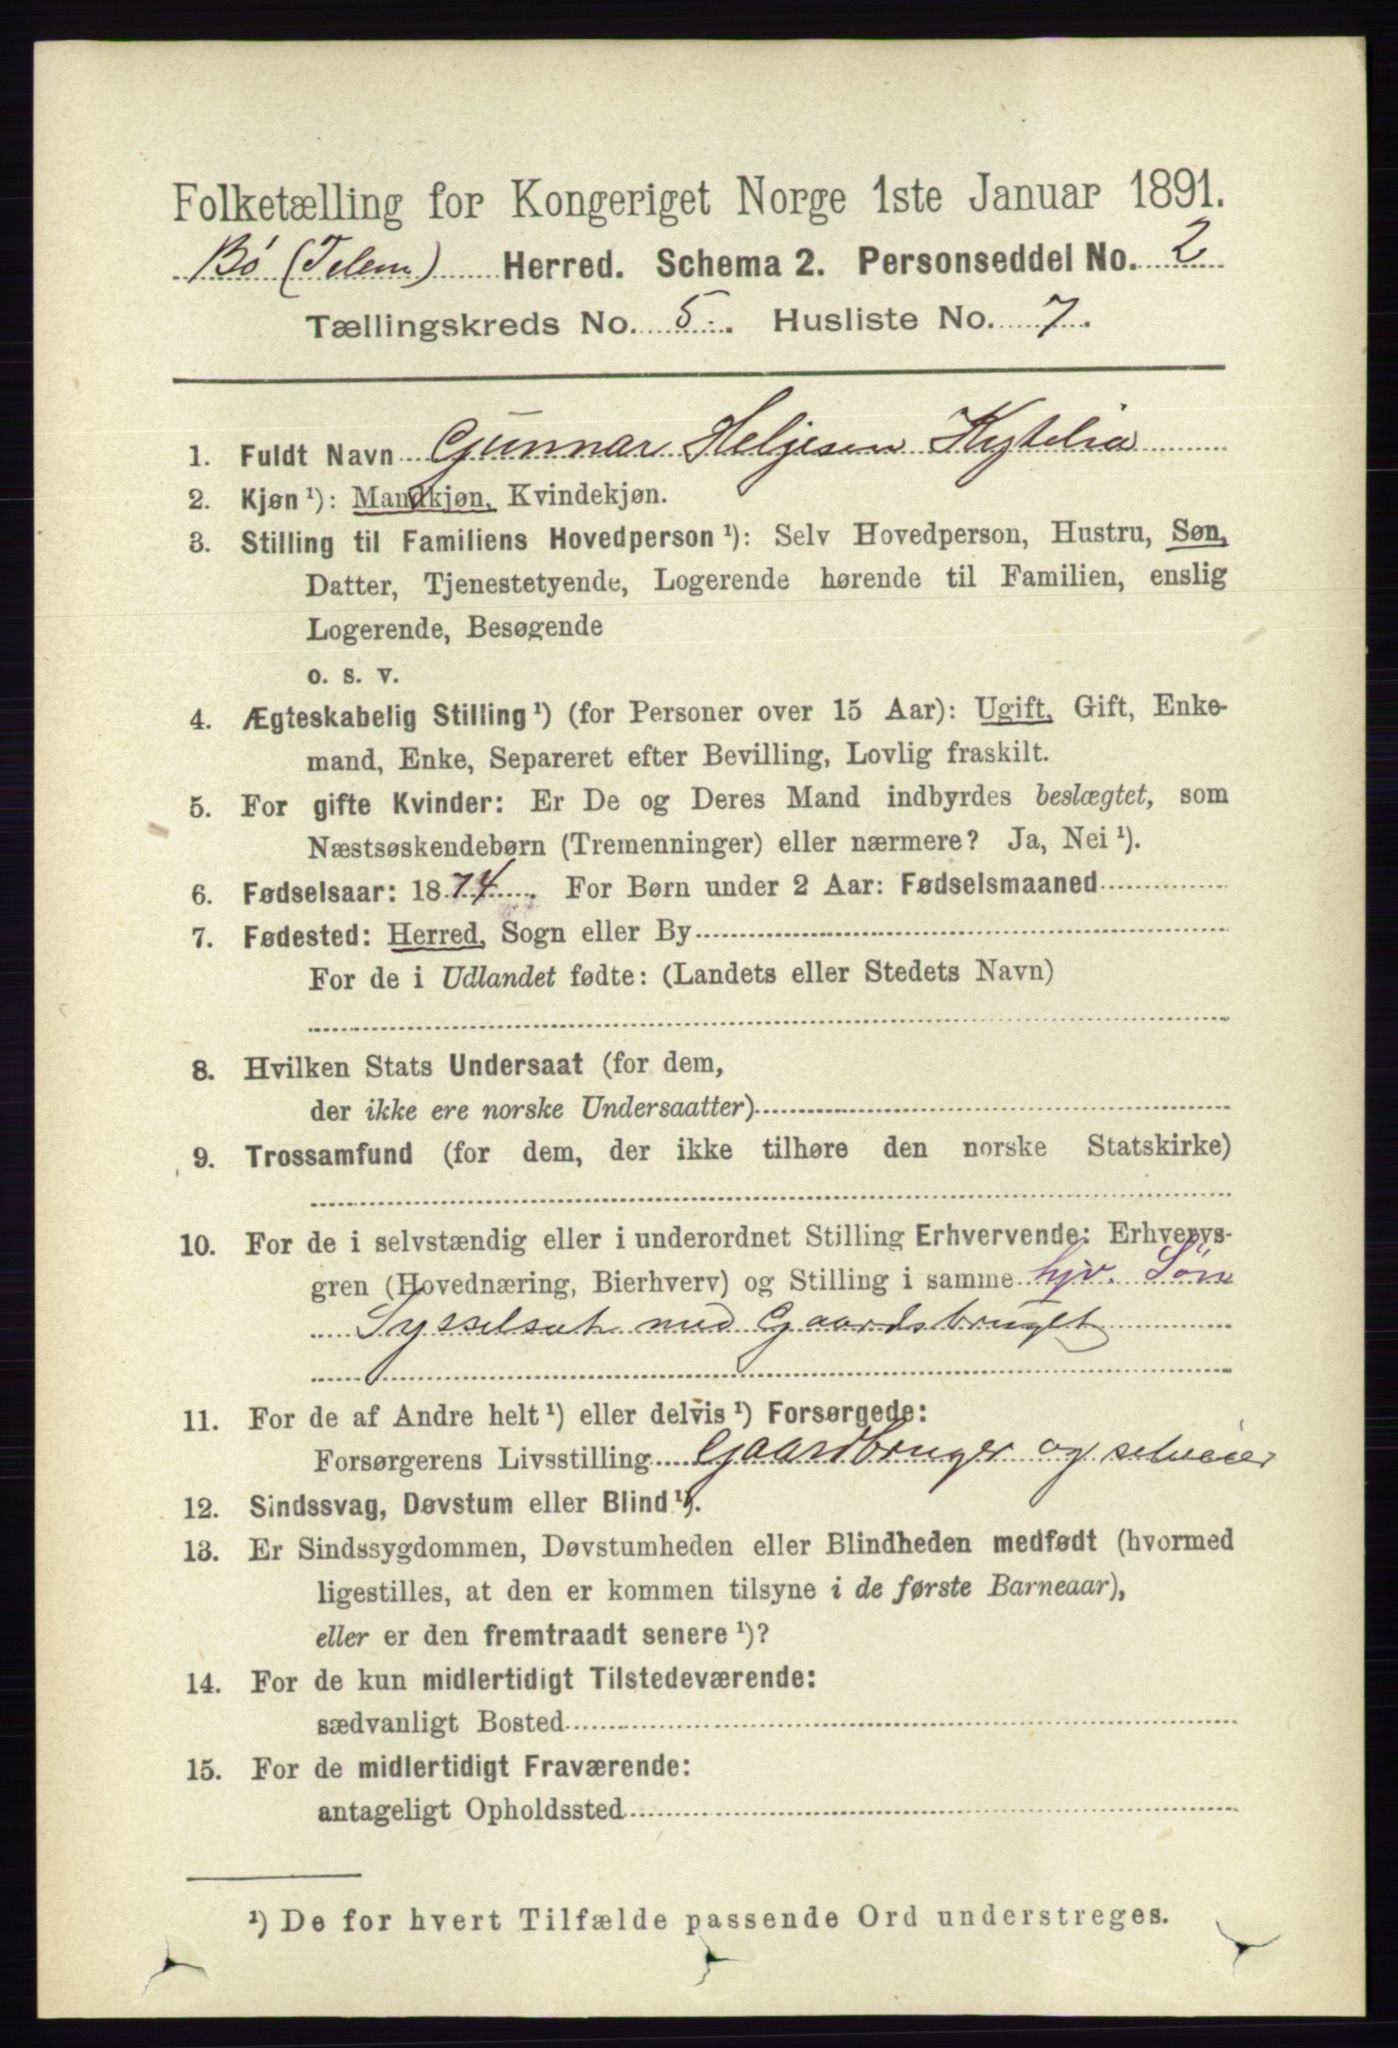 Folketælling for Kongeriget Norge 1ste Januar 1891.
Bø (Telem) Herred. Schema 2. Personseddel No. 2
Tællingskreds No. 5. Husliste No. 7.
1. Fuldt Navn Gunnar Heljesen Kytelia
2. Kjøn ¹): Mandkjøn, Kvindekjøn.
3. Stilling til Familiens Hovedperson ¹): Selv Hovedperson, Hustru, Søn,
Datter, Tjenestetyende, Logerende hørende til Familien, enslig
Logerende, Besøgende
o. s. v.
4. Ægteskabelig Stilling ¹) (for Personer over 15 Aar): Ugift, Gift, Enke-
mand, Enke, Separeret efter Bevilling, Lovlig fraskilt.
5. For gifte Kvinder: Er De og Deres Mand indbyrdes beslægtet, som
Næstsøskendebørn (Tremenninger) eller nærmere? Ja, Nei ¹).
6. Fødselsaar: 1874. For Børn under 2 Aar: Fødselsmaaned
7. Fødested: Herred, Sogn eller By
For de i Udlandet fødte: (Landets eller Stedets Navn)
8. Hvilken Stats Undersaat (for dem,
der ikke ere norske Undersaatter)
9. Trossamfund (for dem, der ikke tilhøre den norske Statskirke)
10. For de i selvstændig eller i underordnet Stilling Erhvervende: Erhvervs-
gren (Hovednæring, Bierhverv) og Stilling i samme hjv. Søn
Sysselsat med Gaardsbruget
11. For de af Andre helt ¹) eller delvis ¹) Forsørgede:
Forsørgerens Livsstilling Gaardbruger og selveier
12. Sindssvag, Døvstum eller Blind ¹).
13. Er Sindssygdommen, Døvstumheden eller Blindheden medfødt (hvormed
ligestilles, at den er kommen tilsyne i de første Barneaar),
eller er den fremtraadt senere ¹)?
14. For de kun midlertidigt Tilstedeværende:
sædvanligt Bosted
15. For de midlertidigt Fraværende:
antageligt Opholdssted
¹) De for hvert Tilfælde passende Ord understreges.